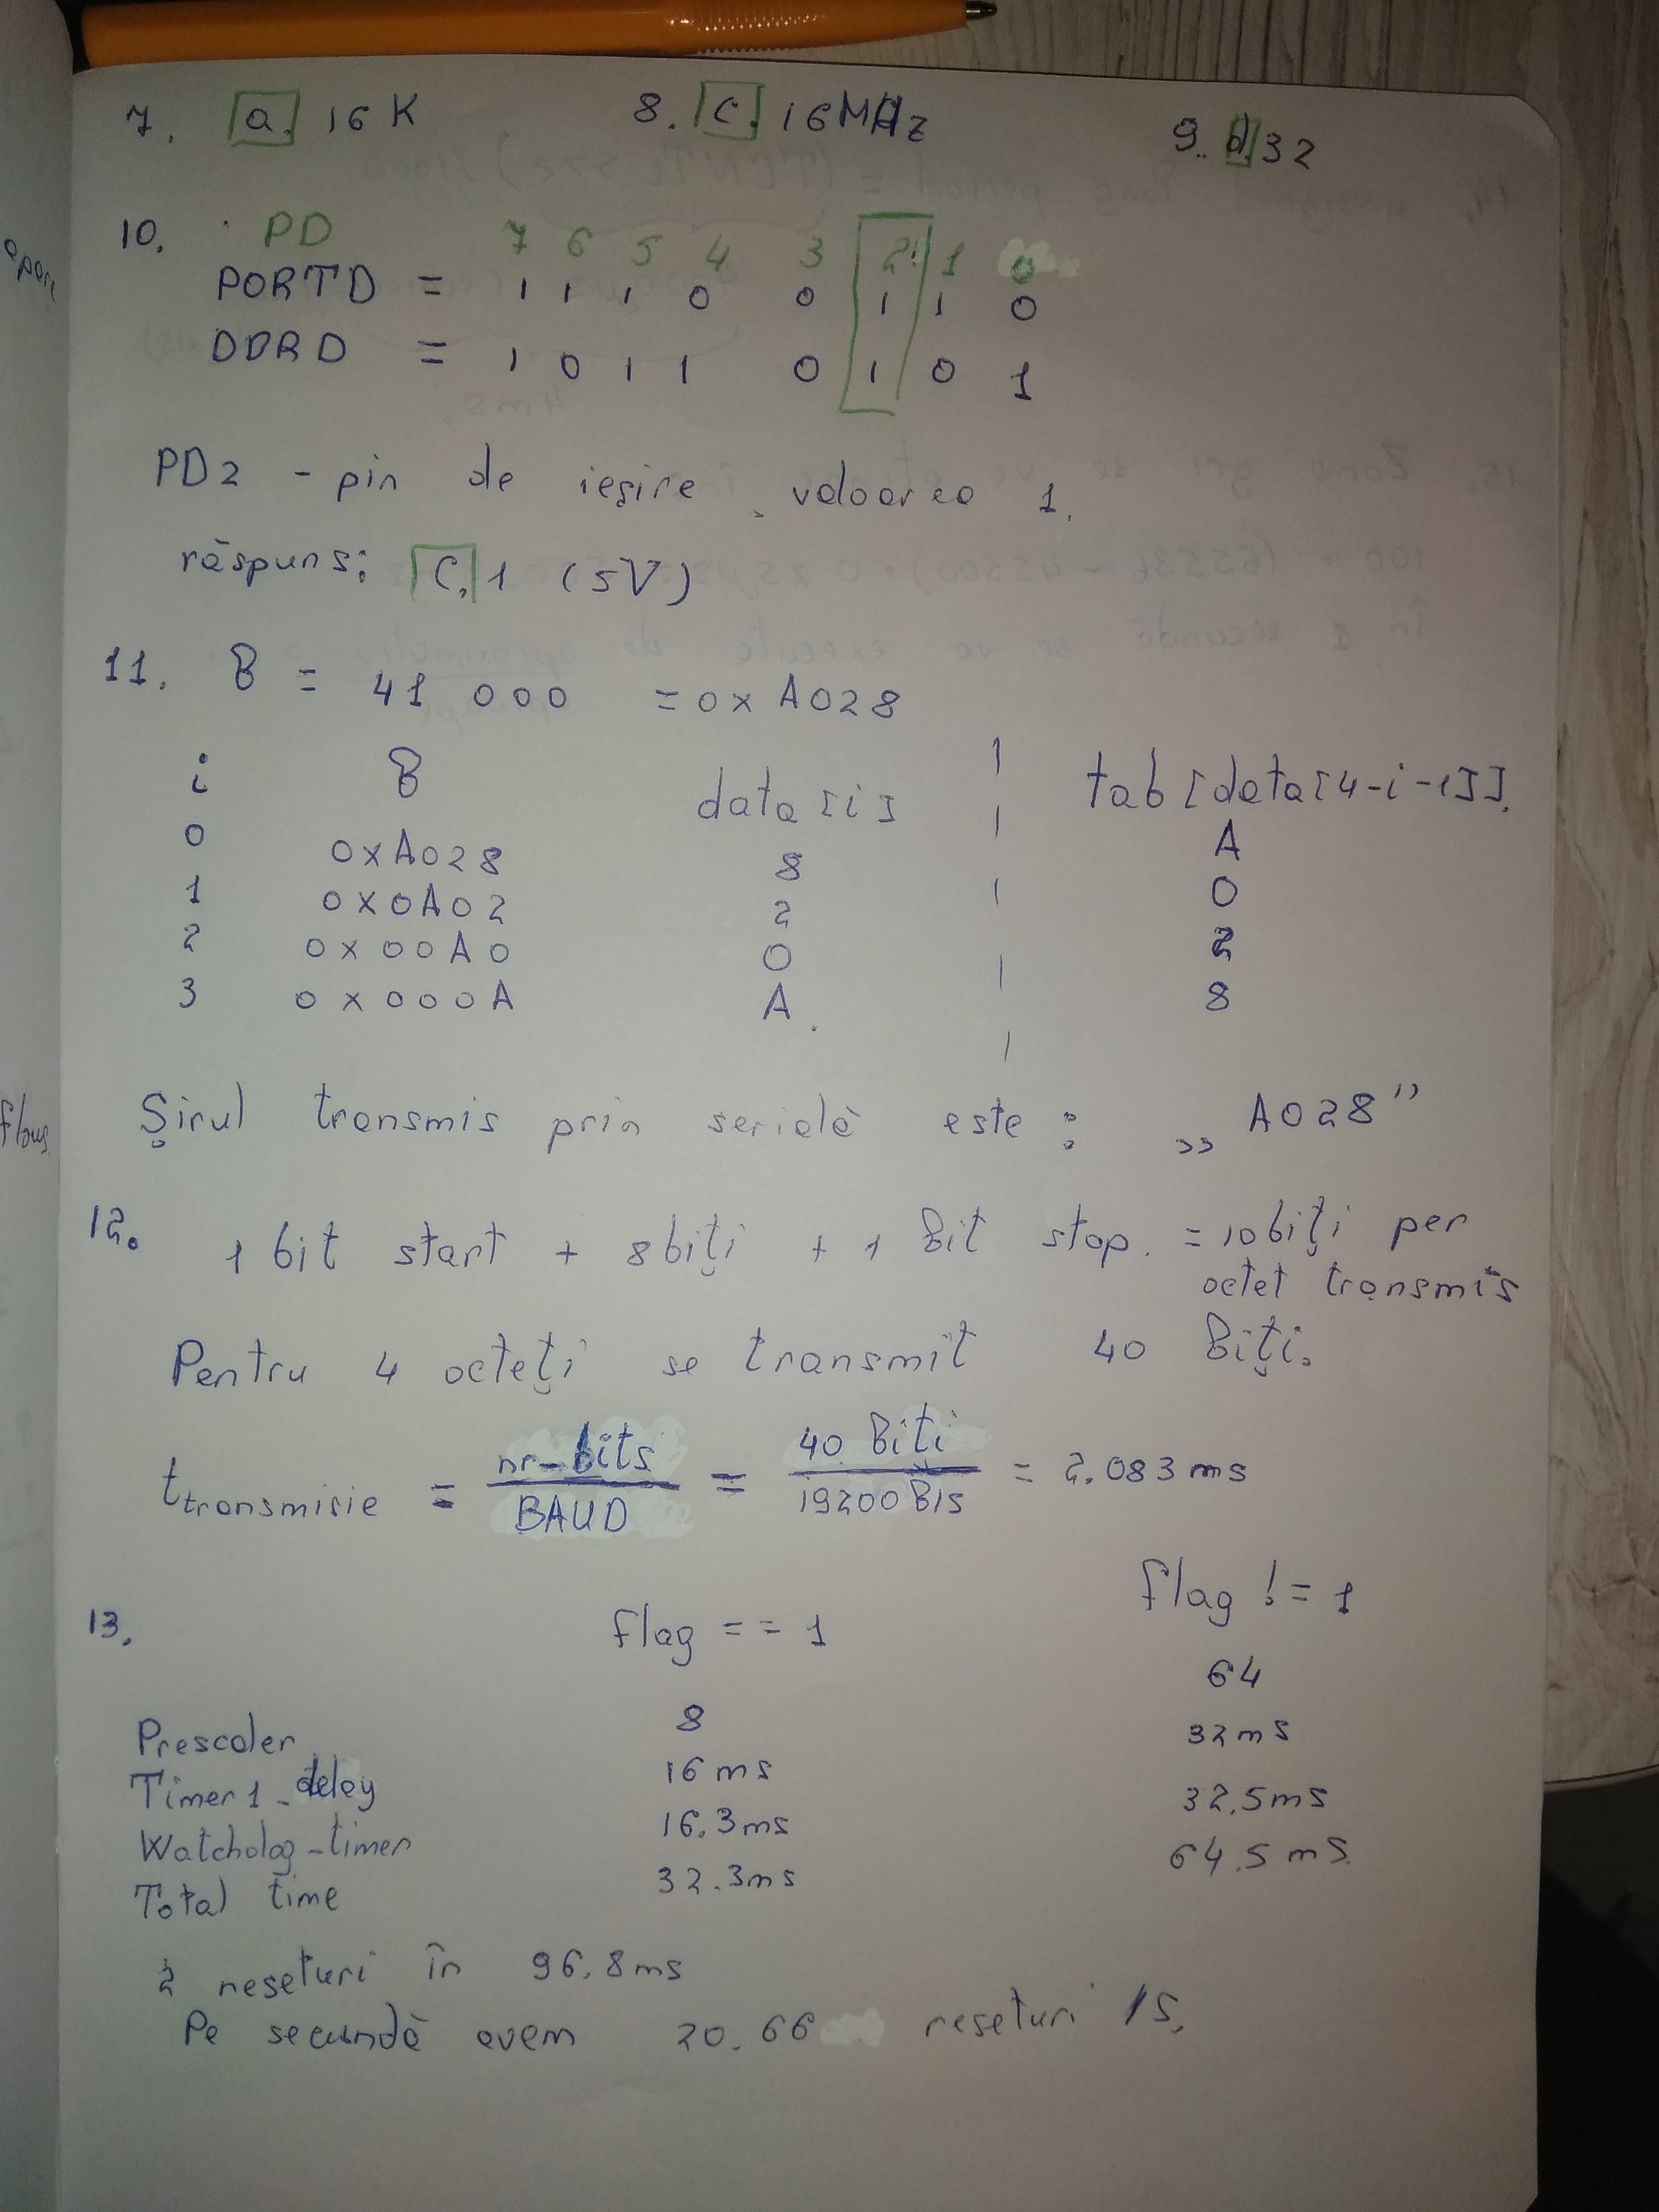 7. a. 16 K 8. c. 16MHz 9. d. 32
10. PD 7 6 5 4 3 2 1 0
PORTD = 1 1 1 0 0 1 1 0
DDRD = 1 0 1 1 0 1 0 1
PD2 - pin de ieșire, valoarea 1.
răspuns: C. 1 (5V)
11. B = 41 000 = 0x A028
i B data[i] tab[data[4-i-1]].
0 0xA028 8 A
1 0x0A02 2 0
2 0x00A0 0 2
3 0x000A A. 8
Șirul transmis prin serială este: „A028”
12. 1 bit start + 8 biți + 1 Bit stop. = 10 biți per
octet transmis
Pentru 4 octeți se transmit 40 Biți.
t transmisie = nr-bits / BAUD = 40 Biți / 19200 B/s = 2.083 ms
13. flag == 1 flag != 1
Prescaler 8 64
Timer1-delay 16 ms 32 ms
Watchdog-timer 16.3ms 32.5ms
Total time 32.3ms 64.5 ms.
2 reseturi în 96.8ms
Pe secundă avem 20.66 reseturi /s.